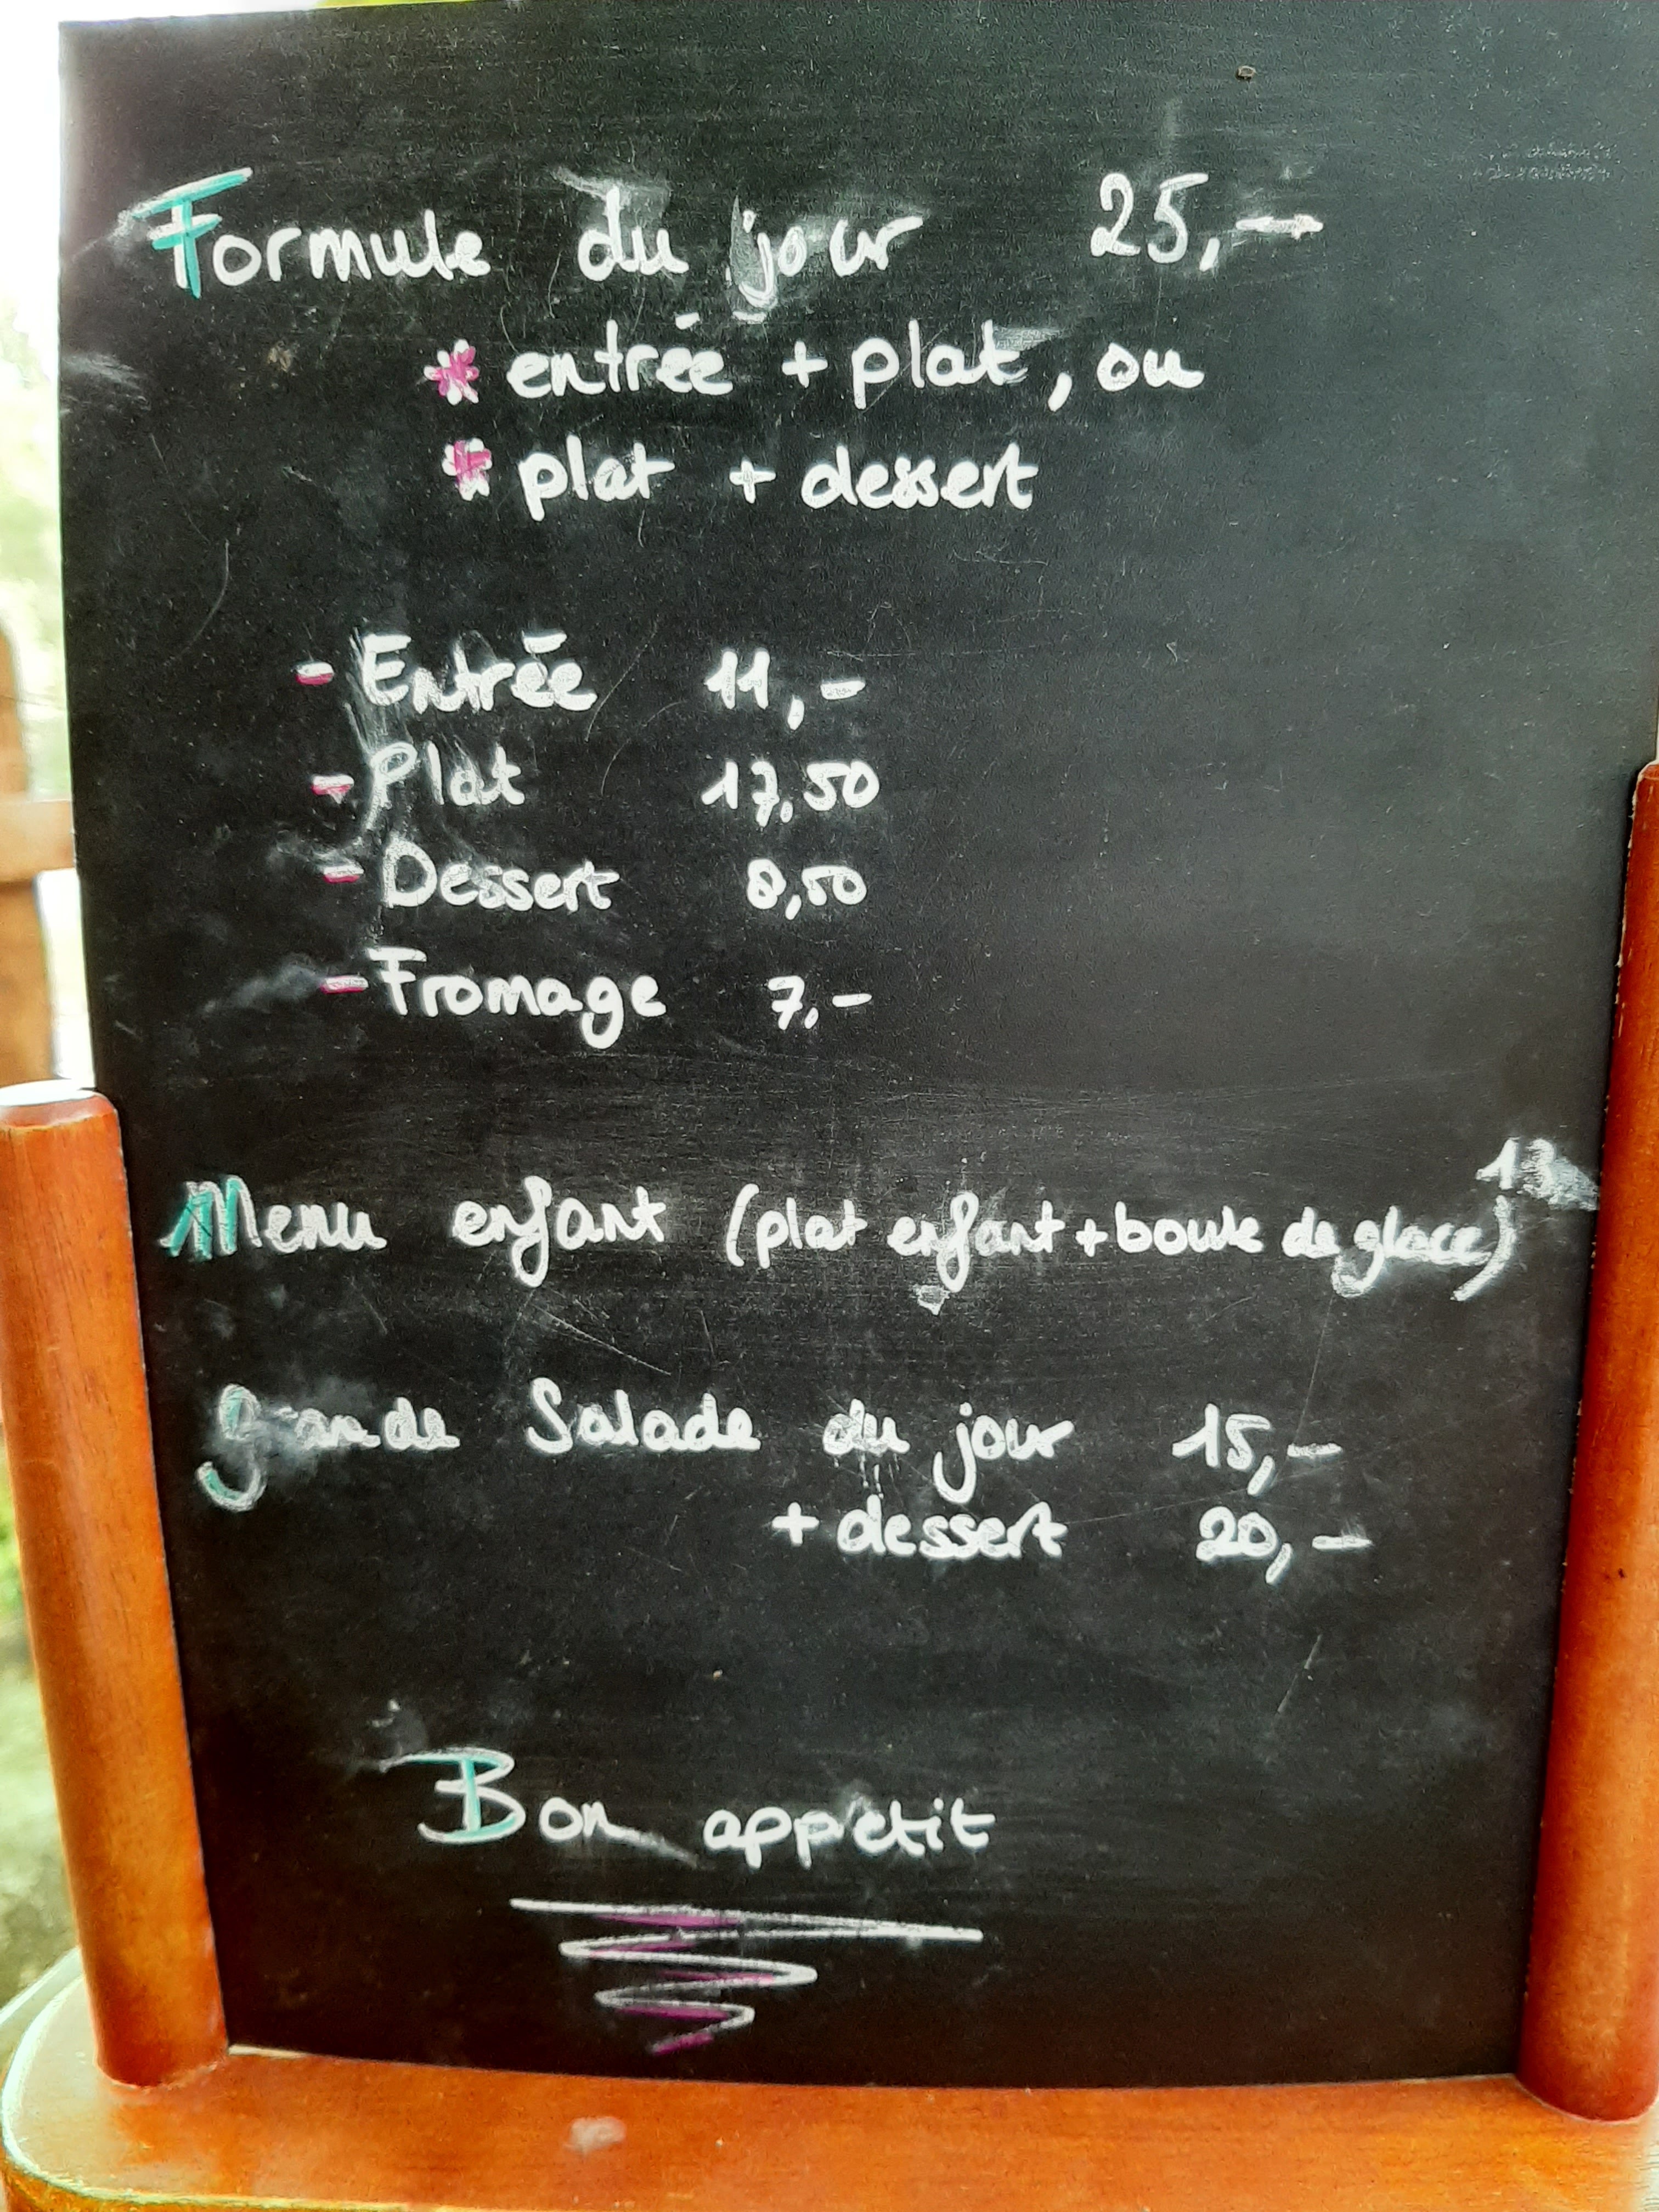 Formule du jour 25,-
* entrée + plat, ou
* plat + dessert
- Entrée 11,-
- Plat 17,50
- Dessert 8,50
- Fromage 7,-
Menu enfant (plat enfant + boule de glace) 13,-
Grande Salade du jour 15,-
+ dessert 20,-
Bon appétit